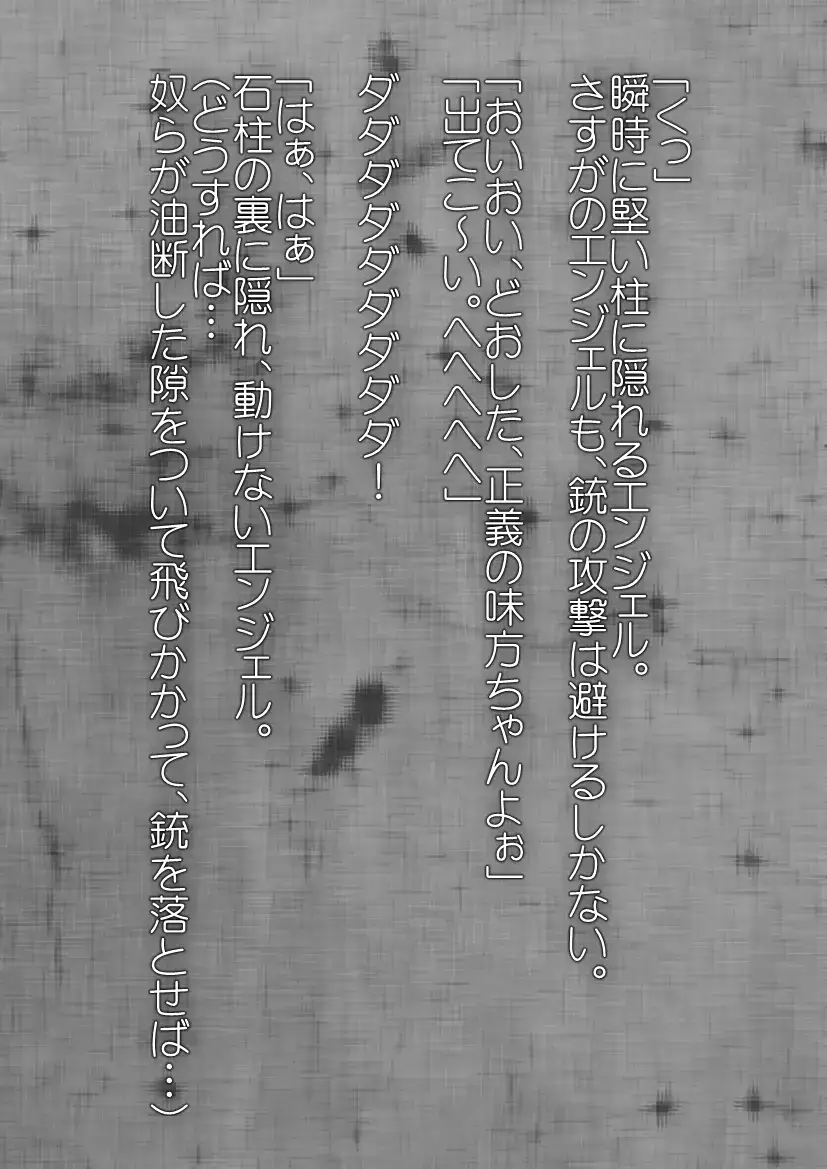 「くっ」
瞬時に堅い柱に隠れるエンジェル。
さすがのエンジェルも、銃の攻撃は避けるしかない。
「おいおい、どおした、正義の味方ちゃんよぉ」
「出てこ～い。へへへへへ」
ダダダダダダダダダ！
「はぁ、はぁ」
石柱の裏に隠れ、動けないエンジェル。
（どうすれば…
奴らが油断した隙をついて飛びかかって、銃を落とせば…）